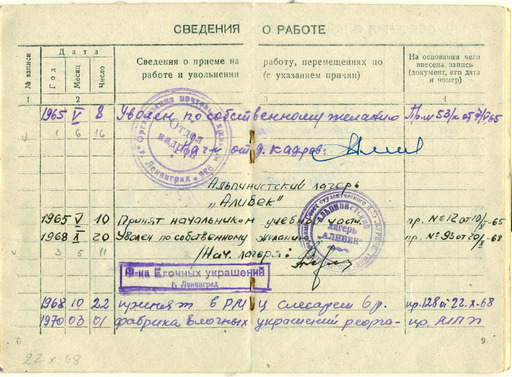 СВЕДЕНИЯ О РАБОТЕ
№ записи
Дата
Год Месяц Число
Сведения о приеме на работу, перемещениях по
работе и увольнении (с указанием причин)
На основании чего
внесена запись
(документ, его дата
и номер)
1 2 3 4
1965 V 8 Уволен по собственному желанию
1 6 16
Отдел кадров
Ленинград
Нач. отд. кадров:
Альпинистский лагерь
„Алибек"
1965 V 10 Принят начальником учебной части. пр. №12 от 10/5-65
1968 X 20 Уволен по собственному желанию пр. №93 от 20/X-68
3 5 11
/Нач. лагеря:
АЛЬПИНИСТСКИЙ лагерь „АЛИБЕК"
Ф-ка Елочных украшений
г. Ленинград
1968 10 22 принят в РМЦ слесарем 6 р. пр. 128 от 22.X.68
1970 03 01 фабрика елочных украшений реорга-
22 X 68